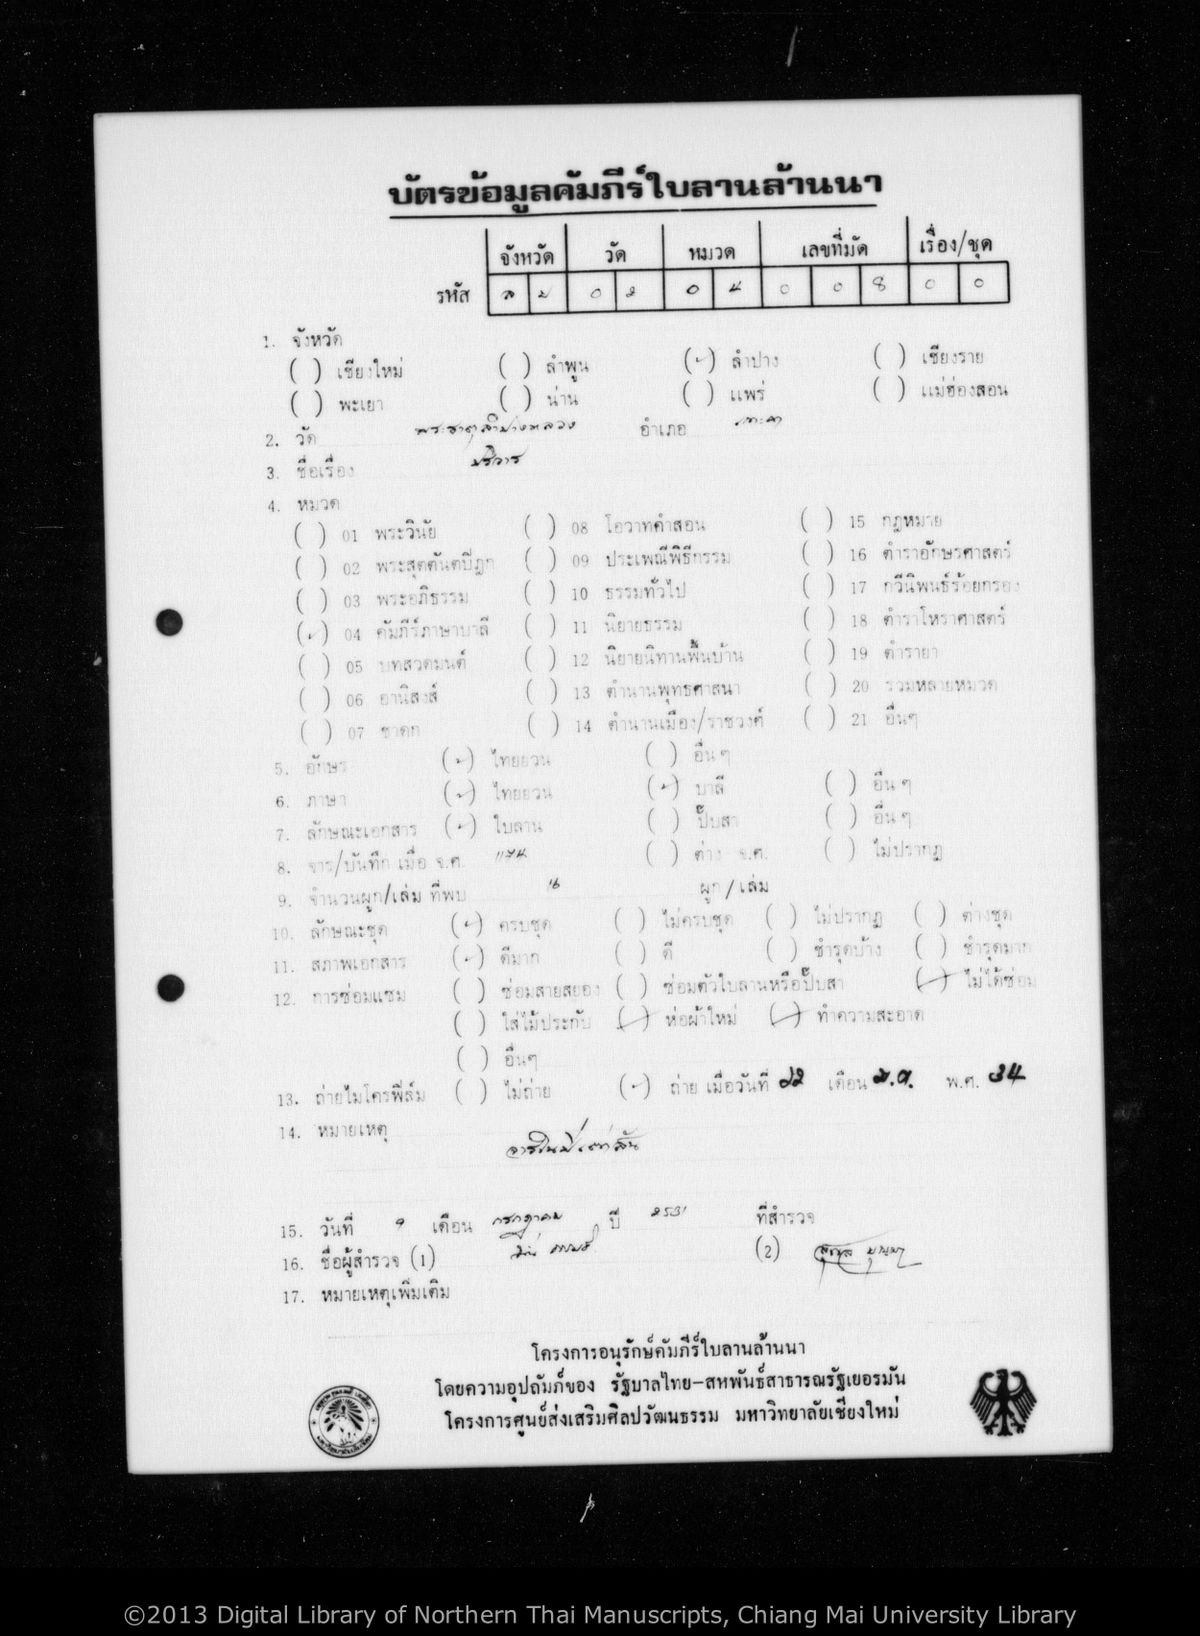 บัตรข้อมูลคัมภีร์ใบลานล้านนา
จังหวัด วัด หมวด เลขที่มัด เรื่อง/ชุด
รหัส ล ป 0 2 0 4 0 0 8 0 0
1. จังหวัด
( ) เชียงใหม่ ( ) ลำพูน (✓) ลำปาง ( ) เชียงราย
( ) พะเยา ( ) น่าน ( ) แพร่ ( ) แม่ฮ่องสอน
2. วัด พระธาตุลำปางหลวง อำเภอ เกาะคา
3. ชื่อเรื่อง ปริวาร
4. หมวด
( ) 01 พระวินัย ( ) 08 โอวาทคำสอน ( ) 15 กฎหมาย
( ) 02 พระสุตตันตปิฎก ( ) 09 ประเพณีพิธีกรรม ( ) 16 ตำราอักษรศาสตร์
( ) 03 พระอภิธรรม ( ) 10 ธรรมทั่วไป ( ) 17 กวีนิพนธ์ร้อยกรอง
(✓) 04 คัมภีร์ภาษาบาลี ( ) 11 นิยายธรรม ( ) 18 ตำราโหราศาสตร์
( ) 05 บทสวดมนต์ ( ) 12 นิยายนิทานพื้นบ้าน ( ) 19 ตำรายา
( ) 06 อานิสงส์ ( ) 13 ตำนานพุทธศาสนา ( ) 20 รวมหลายหมวด
( ) 07 ชาดก ( ) 14 ตำนานเมือง/ราชวงศ์ ( ) 21 อื่นๆ
5. อักษร (✓) ไทยยวน ( ) อื่นๆ
6. ภาษา (✓) ไทยยวน (✓) บาลี ( ) อื่นๆ
7. ลักษณะเอกสาร (✓) ใบลาน ( ) ปั๊บสา ( ) อื่นๆ
8. จาร/บันทึก เมื่อ จ.ศ. ( ) ต่าง จ.ศ. ( ) ไม่ปรากฏ
9. จำนวนผูก/เล่ม ที่พบ 16 ผูก/เล่ม
10. ลักษณะชุด (✓) ครบชุด ( ) ไม่ครบชุด ( ) ไม่ปรากฏ ( ) ต่างชุด
11. สภาพเอกสาร (✓) ดีมาก ( ) ดี ( ) ชำรุดบ้าง ( ) ชำรุดมาก
12. การซ่อมแซม ( ) ซ่อมสายสยอง ( ) ซ่อมตัวใบลานหรือปั๊บสา (✓) ไม่ได้ซ่อม
( ) ใส่ไม้ประกับ (✓) ห่อผ้าใหม่ (✓) ทำความสะอาด
( ) อื่นๆ
13. ถ่ายไมโครฟิล์ม ( ) ไม่ถ่าย (✓) ถ่าย เมื่อวันที่ 22 เดือน พ.ศ. 34
14. หมายเหตุ
15. วันที่ 9 เดือน กรกฎาคม ปี 2531 ที่สำรวจ
16. ชื่อผู้สำรวจ (1) (2)
17. หมายเหตุเพิ่มเติม
โครงการอนุรักษ์คัมภีร์ใบลานล้านนา
โดยความอุปถัมภ์ของ รัฐบาลไทย-สหพันธ์สาธารณรัฐเยอรมัน
โครงการศูนย์ส่งเสริมศิลปวัฒนธรรม มหาวิทยาลัยเชียงใหม่
©2013 Digital Library of Northern Thai Manuscripts, Chiang Mai University Library